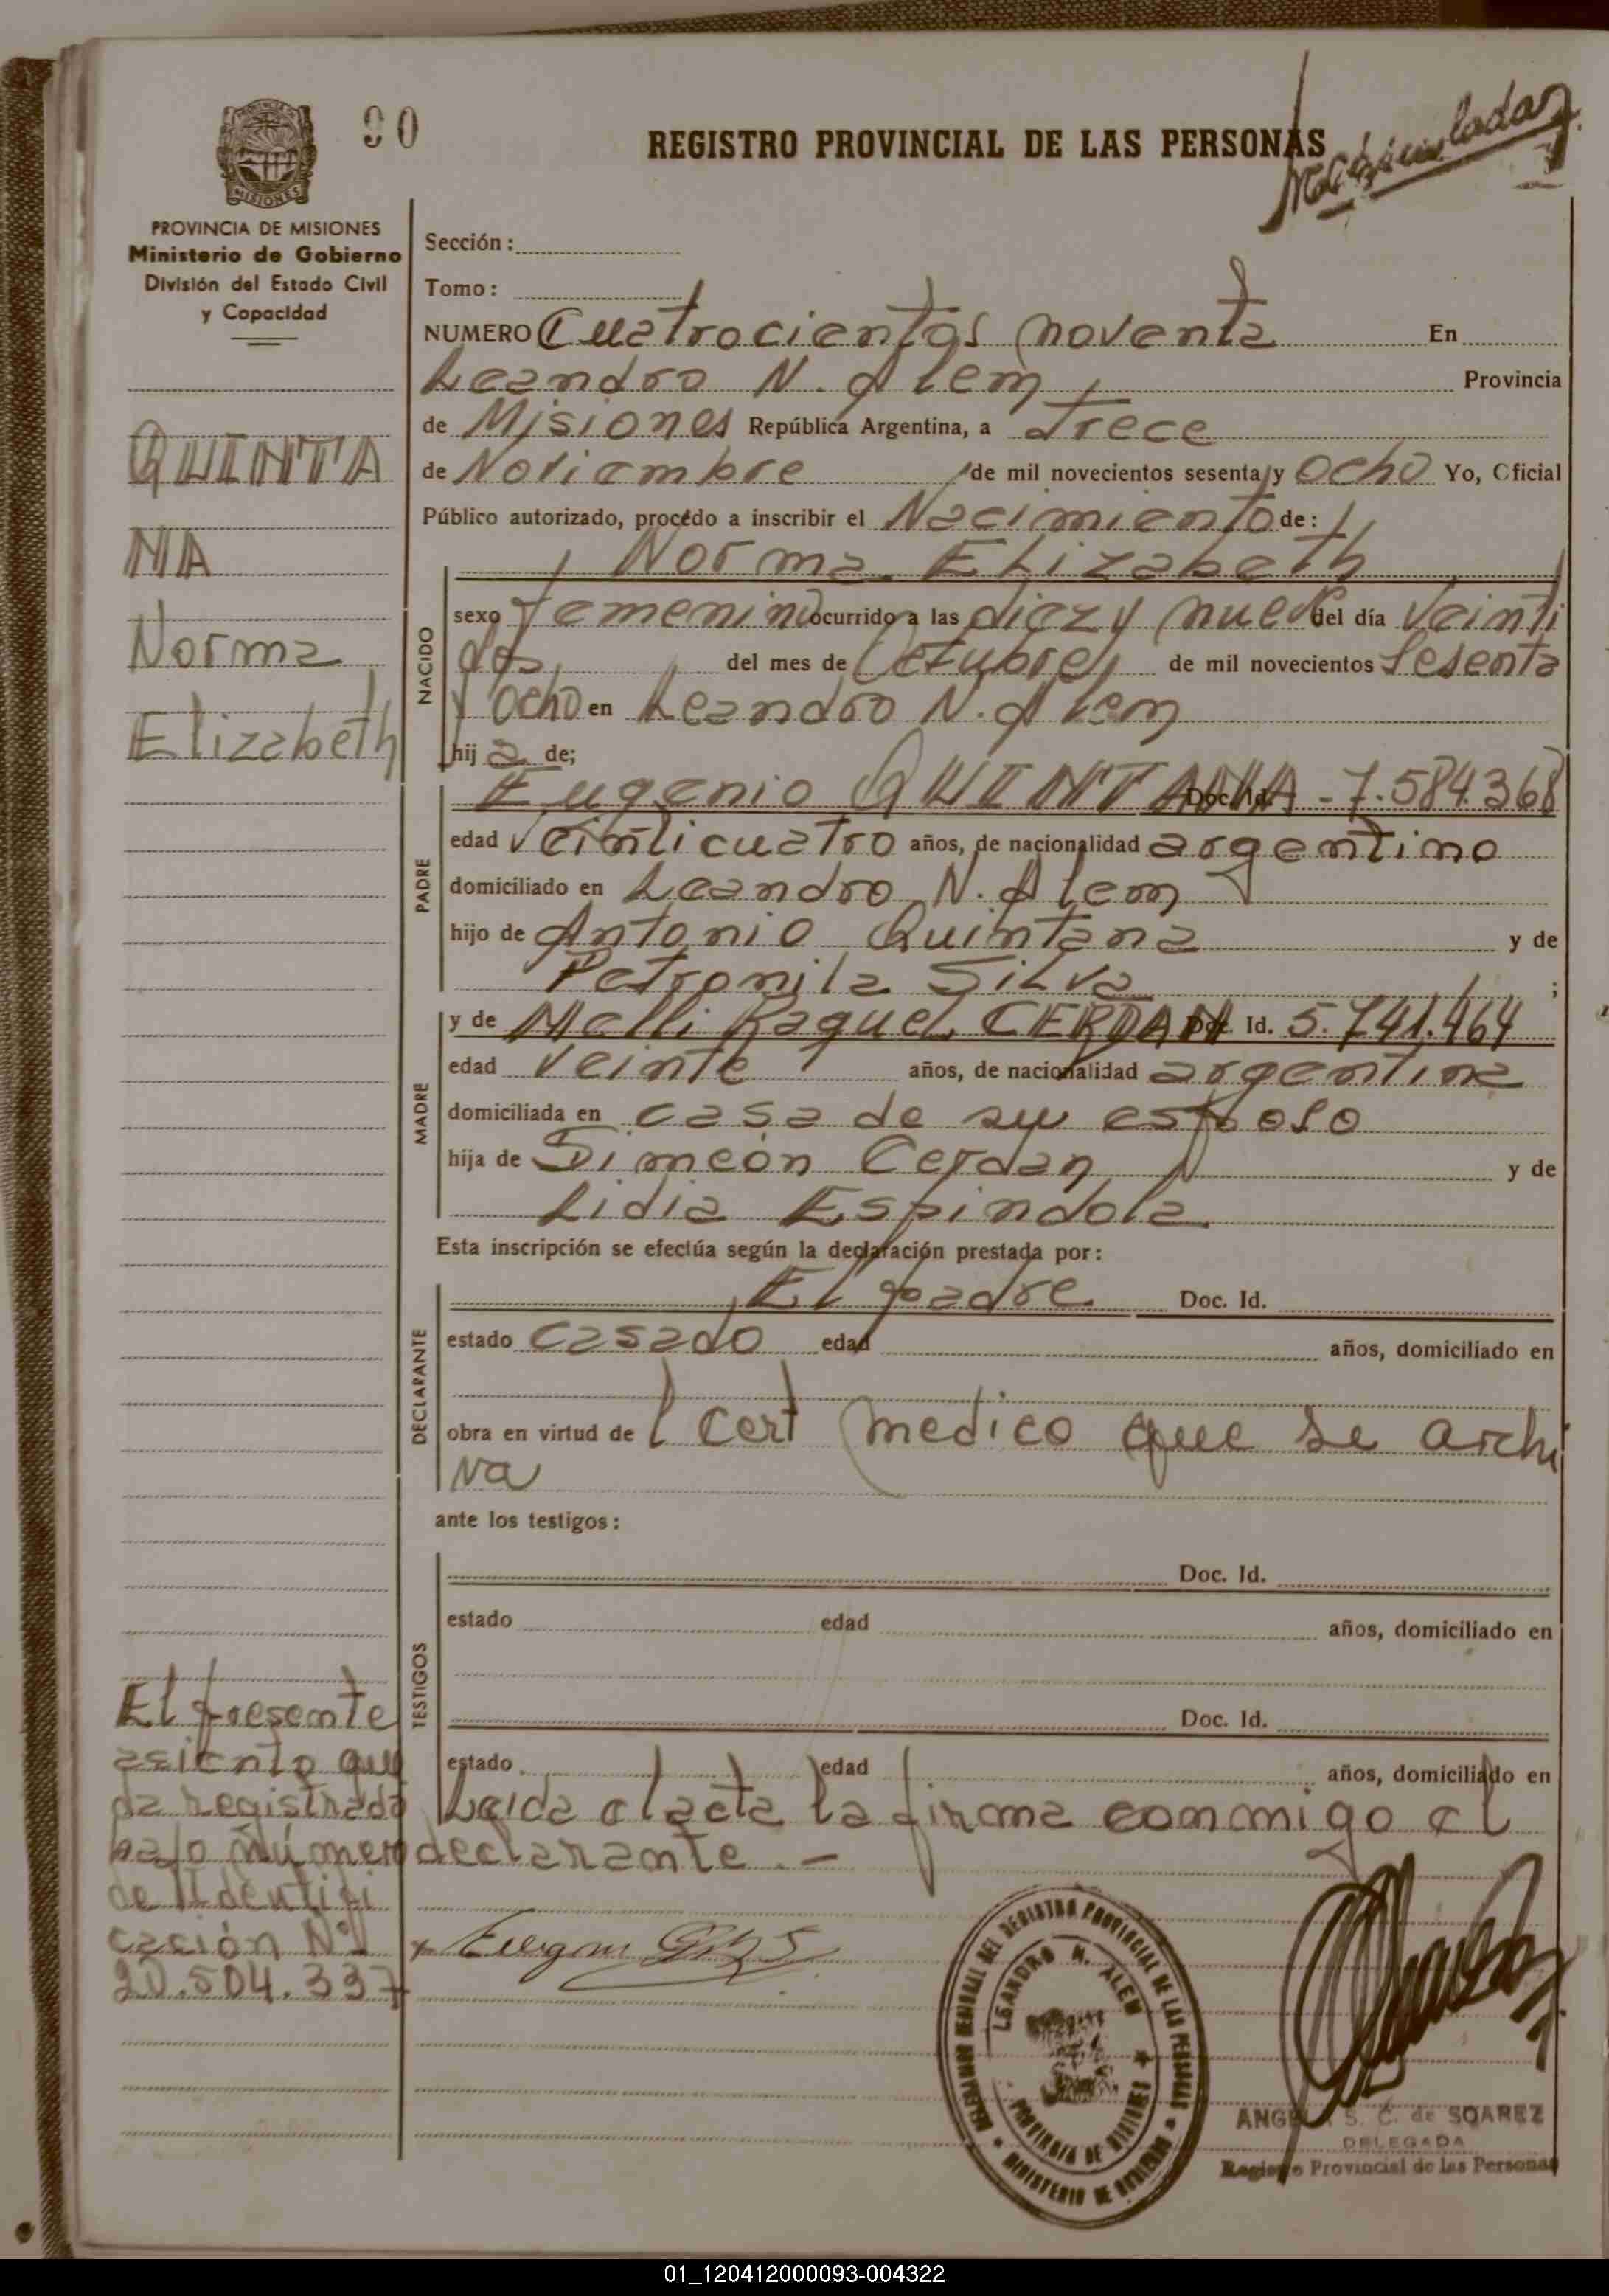 90
REGISTRO PROVINCIAL DE LAS PERSONAS
Matriculada
MISIONES
PROVINCIA DE MISIONES
Ministerio de Gobierno
División del Estado Civil
y Capacidad
Sección:
Tomo:
NUMERO Cuatrocientos noventa En
Leandro N. Alem Provincia
de Misiones República Argentina, a Trece
de Noviembre de mil novecientos sesenta y Ocho Yo, Oficial
Público autorizado, procedo a inscribir el Nacimiento de:
Norma Elizabeth
QUINTA
NA
Norma
Elizabeth
NACIDO
sexo femenino ocurrido a las diez y nueve del día Veinti
dos del mes de Octubre de mil novecientos Sesenta
y Ocho en Leandro N. Alem
hija de;
PADRE
Eugenio QUINTANA Doc. Id. - 7.584.368
edad Veinticuatro años, de nacionalidad argentino
domiciliado en Leandro N. Alem
hijo de Antonio Quintana y de
Petronila Silva ;
MADRE
y de Melli Raquel CERDAN Doc. Id. 5.741.464
edad Veinte años, de nacionalidad argentina
domiciliada en casa de su esposo
hija de Simeón Cerdan y de
Lidia Espindola
Esta inscripción se efectúa según la declaración prestada por:
DECLARANTE
El padre Doc. Id.
estado Casado edad años, domiciliado en
obra en virtud de l Cert medico que se archi
va
ante los testigos:
TESTIGOS
Doc. Id.
estado edad años, domiciliado en
Doc. Id.
estado edad años, domiciliado en
Leida el acta la firma conmigo el
declarante. -
El presente
asiento que
da registrado
bajo número
de Identifi
cación Nº
20.504.337
DELEGACION REGIONAL DEL REGISTRO PROVINCIAL DE LAS PERSONAS
LEANDRO N. ALEM
PROVINCIA DE MISIONES
MINISTERIO DE GOBIERNO
S. C. de SOAREZ
DELEGADA
Registro Provincial de las Personas
01_120412000093-004322